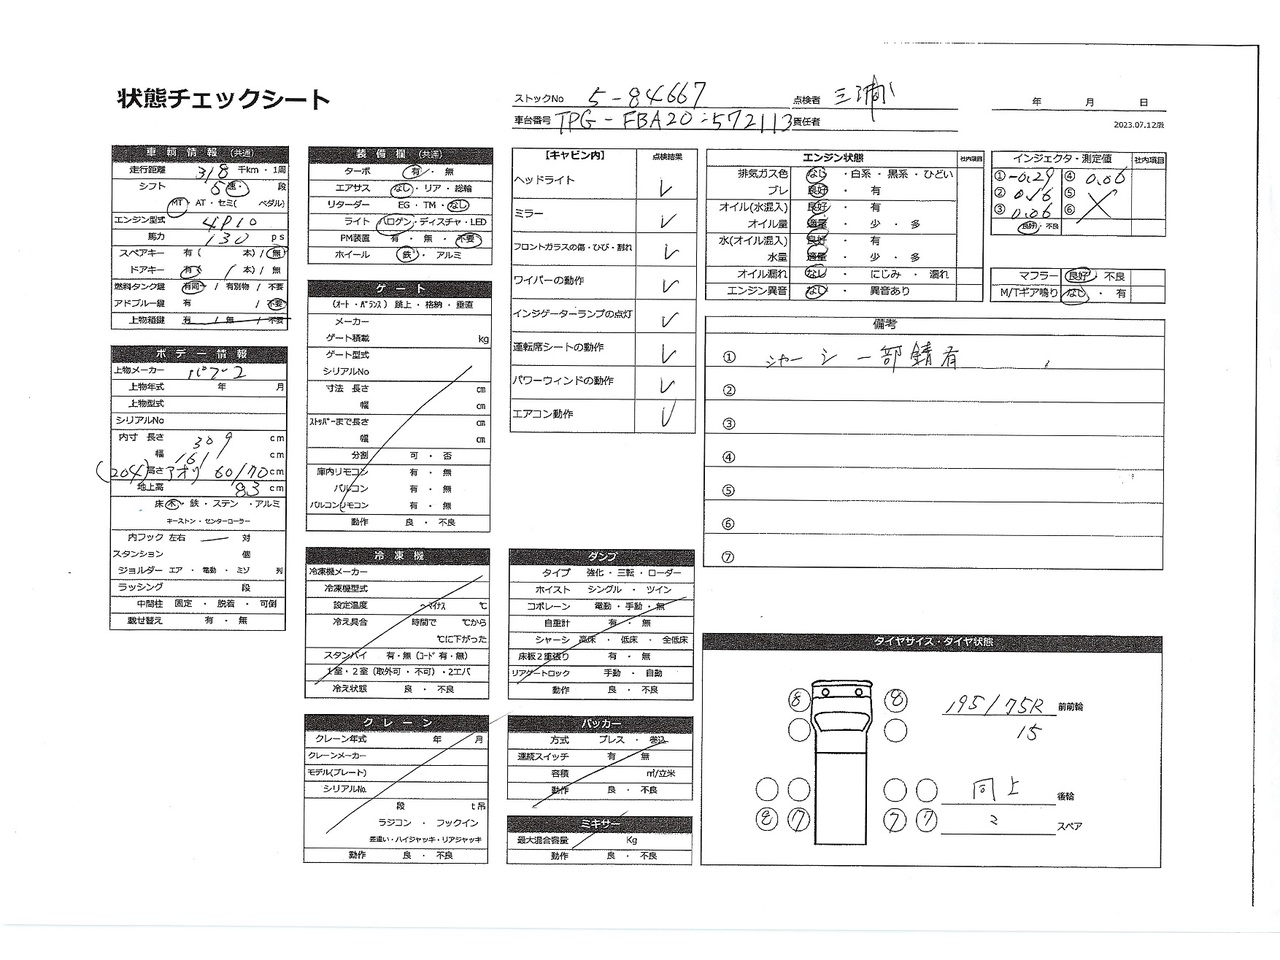 状態チェックシート
ストックNo 5-84667 点検者 三浦
年 月 日
車台番号 TPG-FBA20-572113 責任者
2023.07.12版
車輌情報 (共通)
走行距離 318 千km・1周
シフト 5 速・ 段
MT・AT・セミ( ペダル)
エンジン型式 4P10
馬力 130 ps
スペアキー 有( 本) / 無
ドアキー 有( 1 本) / 無
燃料タンク鍵 有同一 / 有別物 / 不要
アドブルー鍵 有 / 不要
上物箱鍵 有 / 無 / 不要
ボデー情報
上物メーカー パブコ
上物年式 年 月
上物型式
シリアルNo
内寸 長さ 309 cm
幅 161 cm
(204) 高さ アオリ 60/70 cm
地上高 83 cm
床 木・鉄・ステン・アルミ
キーストン・センターローラー
内フック 左右 対
スタンション 個
ジョルダー エア・電動・ミゾ 列
ラッシング 段
中間柱 固定・脱着・可倒
載せ替え 有・無
装備欄 (共通)
ターボ 有・無
エアサス なし・リア・総輪
リターダー EG・TM・なし
ライト ハロゲン・ディスチャ・LED
PM装置 有・無・不要
ホイール 鉄・アルミ
ゲート
(オート・バランス) 跳上・格納・垂直
メーカー
ゲート積載 kg
ゲート型式
シリアルNo
寸法 長さ cm
幅 cm
ストッパーまで長さ cm
幅 cm
分割 可・否
庫内リモコン 有・無
バルコン 有・無
バルコンリモコン 有・無
動作 良・不良
冷凍機
冷凍機メーカー
冷凍機型式
設定温度 ～マイナス ℃
冷え具合 時間で ℃から
℃に下がった
スタンバイ 有・無 (コード 有・無)
1室・2室 (取外可・不可)・2エバ
冷え状態 良・不良
クレーン
クレーン年式 年 月
クレーンメーカー
モデル(プレート)
シリアルNo.
段 t吊
ラジコン・フックイン
差違い・ハイジャッキ・リアジャッキ
動作 良・不良
【キャビン内】 点検結果
ヘッドライト ✓
ミラー ✓
フロントガラスの傷・ひび・割れ ✓
ワイパーの動作 ✓
インジゲーターランプの点灯 ✓
運転席シートの動作 ✓
パワーウィンドの動作 ✓
エアコン動作 ✓
ダンプ
タイプ 強化・三転・ローダー
ホイスト シングル・ツイン
コボレーン 電動・手動・無
自重計 有・無
シャーシ 高床・低床・全低床
床板2重張り 有・無
リアゲートロック 手動・自動
動作 良・不良
パッカー
方式 プレス・巻込
連続スイッチ 有 無
容積 ㎥/立米
動作 良・不良
ミキサー
最大混合容量 Kg
動作 良・不良
エンジン状態 社内項目
排気ガス色 なし・白系・黒系・ひどい
ブレ 良好・有
オイル(水混入) 良好・有
オイル量 適量・少・多
水(オイル混入) 良好・有
水量 適量・少・多
オイル漏れ なし・にじみ・漏れ
エンジン異音 なし・異音あり
インジェクタ・測定値 社内項目
① -0.29 ④ 0.06
② 0.16 ⑤
③ 0.06 ⑥
良好・不良
マフラー 良好・不良
M/Tギア鳴り なし・有
備考
① シャーシ一部錆有
②
③
④
⑤
⑥
⑦
タイヤサイズ・タイヤ状態
8 8 195/75R 前前輪
15
同上 後輪
8 7 7 7 〃 スペア